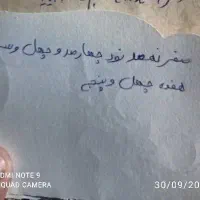 صفر نهصد نود چهارصد و چهل و سه
هفده چهل و پنج
REDMI NOTE 9
QUAD CAMERA
30/09/20